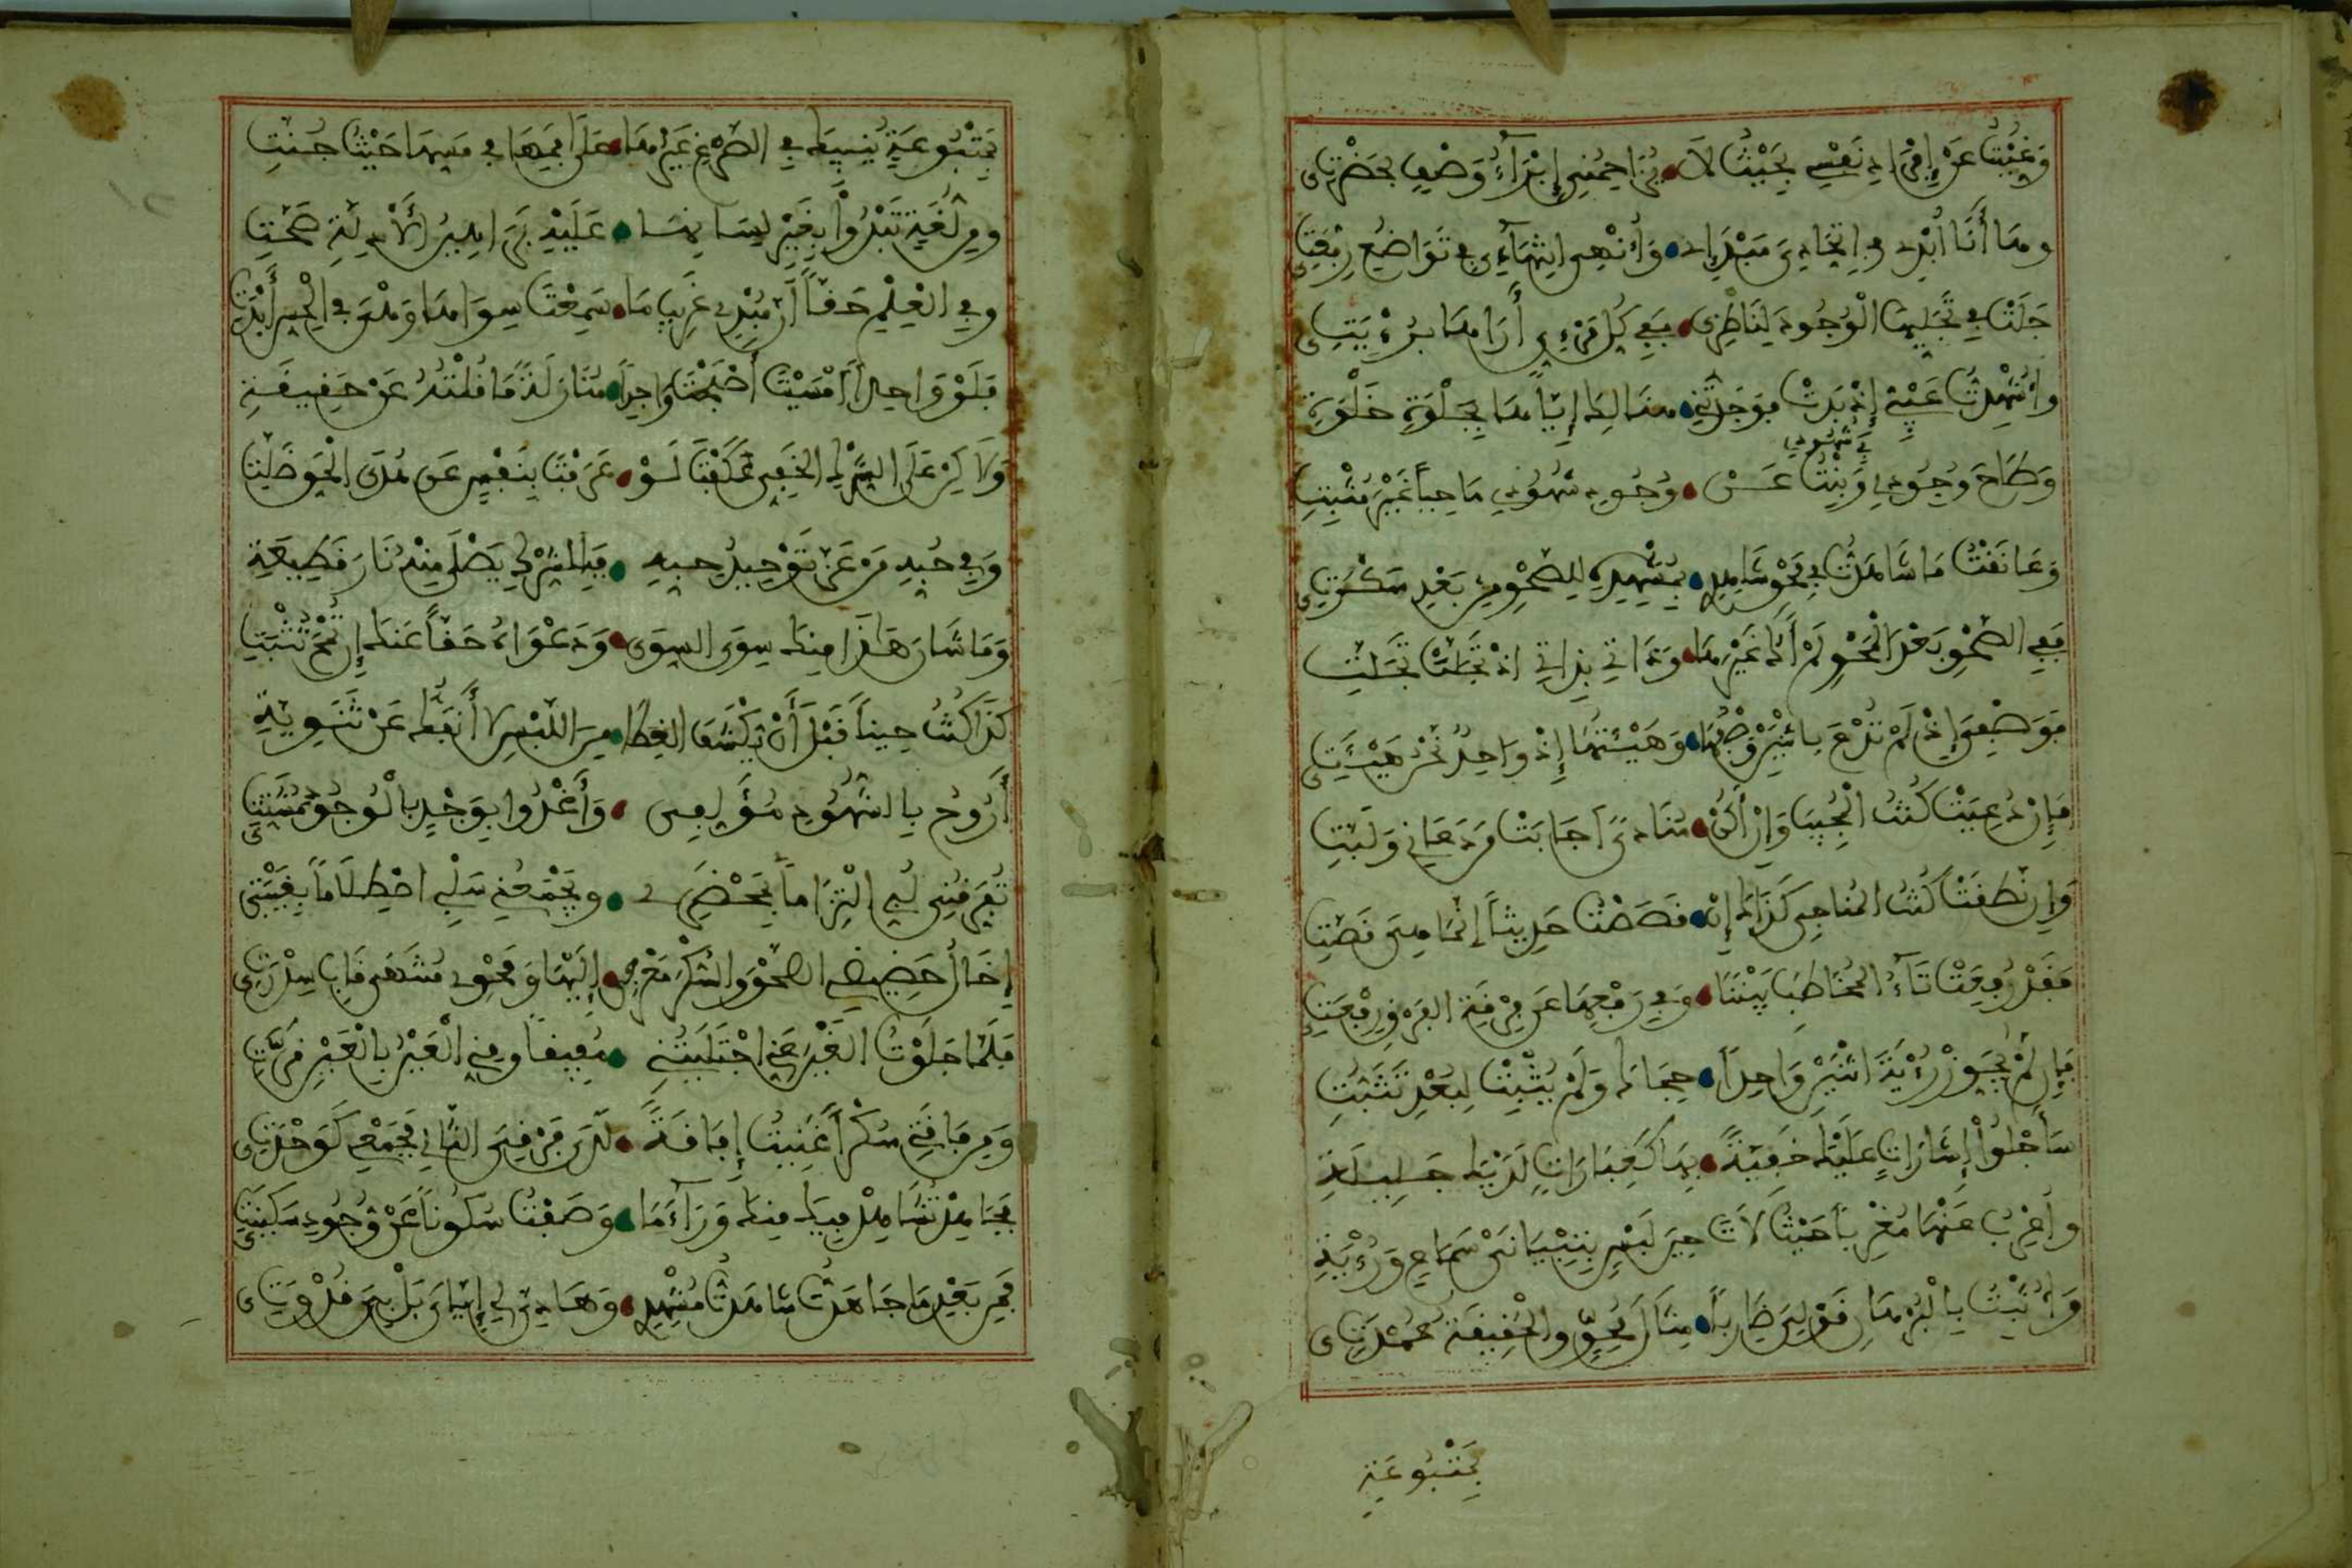 وَغِبْتُ عَنْ إِفْرَادِ نَفْسِي بِحَيْثُ لاَ • يُزَاحِمُنِي إِبْدَاءُ وَصْفٍ بِحَضْرَتِي
وها أَنَا أُبْدِي في اتحادي مبدإي • وأنهي انتهائي في تواضع رفعتي
جلت في تجليها الوجود لناظري • ففي كل مرئي أراها برؤيتي
وأشهدت غيبي إذ بدت فوجدتني • هنالك إياها بجلوة خلوتي
وطاح وجودي في شهودي وبنت عن • وجود شهودي ماحيا غير مثبت
وعانقت ما شاهدت في محو شاهدي • بمشهده للصحو من بعد سكرتي
ففي الصحو بعد المحو لم أك غيرها • وذاتي بذاتي إذ تحلت تجلت
فوصفي إذ لم تدع باثنين وصفها • وهيئتها إذ واحد نحن هيئتي
فإن دعيت كنت المجيب وإن أكن • منادى أجابت من دعاني ولبت
وإن نطقت كنت المناجي كذاك إن • قصصت حديثا إنما هي قصت
فقد رفعت تاء المخاطب بيننا • وفي رفعها عن فرقة الفرق رفعتي
فإن لم يجوز رؤية اثنين واحدا • حجاك ولم يثبت لبعد تثبت
سأجلوا إشارات عليك خفية • بها كعبارات لديك جلية
وأعرب عنها مغربا حيث لات حين لبس بتبياني سماع ورؤية
وأثبت بالبرهان قولي ضاربا • مثال محق والحقيقة عمدتي
بمتبوعة
بمتبوعة ينبيك في الصرع غيرها • على فمها في مسها حيث جنت
ومن لغة تبدوا بغير لسانها • عليه براهين الأدلة صحت
وفي العلم حقا أن مبدي غريب ما • سمعت سواها وهي في الحس أبدت
فلو واحدا أمسيت أصبحت واجدا • منازلة ما قلته عن حقيقة
ولاكن على الشرك الخفي عكفت لو • عرفت بنفس عن هدى الحق ضلت
وفي حبه من عز توحيد حبه • فبالشرك يصلى منه نار قطيعة
وما شان هاذا منك سوى السوى • ودعواه حقا عنك إن تمح تثبت
كذا كنت حينا قبل أن يكشف الغطا • من اللبس لا أنفك عن ثنوية
أروح بالشهود مؤلفي • وأغدوا بوجد بالوجود مشتتي
تفرقني لبي التزاما بمحضري • ويجمعني سلبي اصطلاما بغيبتي
إخال حضيضي الصحو والسكر معرجي • إليها ومحوي منتهى قاب سدرتي
فلما جلوت الغين عني اجتليتني • مفيقا ومني العين بالعين قرت
ومن فاقتي سكرا غنيت إفاقة • لدى فرقي الثاني فجمعي كوحدتي
فجاهد تشاهد فيك منك وراء ما • وصفت سكونا عن وجود سكينتي
فمن بعد ما جاهدت شاهدت مشهدي • وهادي لي إياي بل بي قدوتي